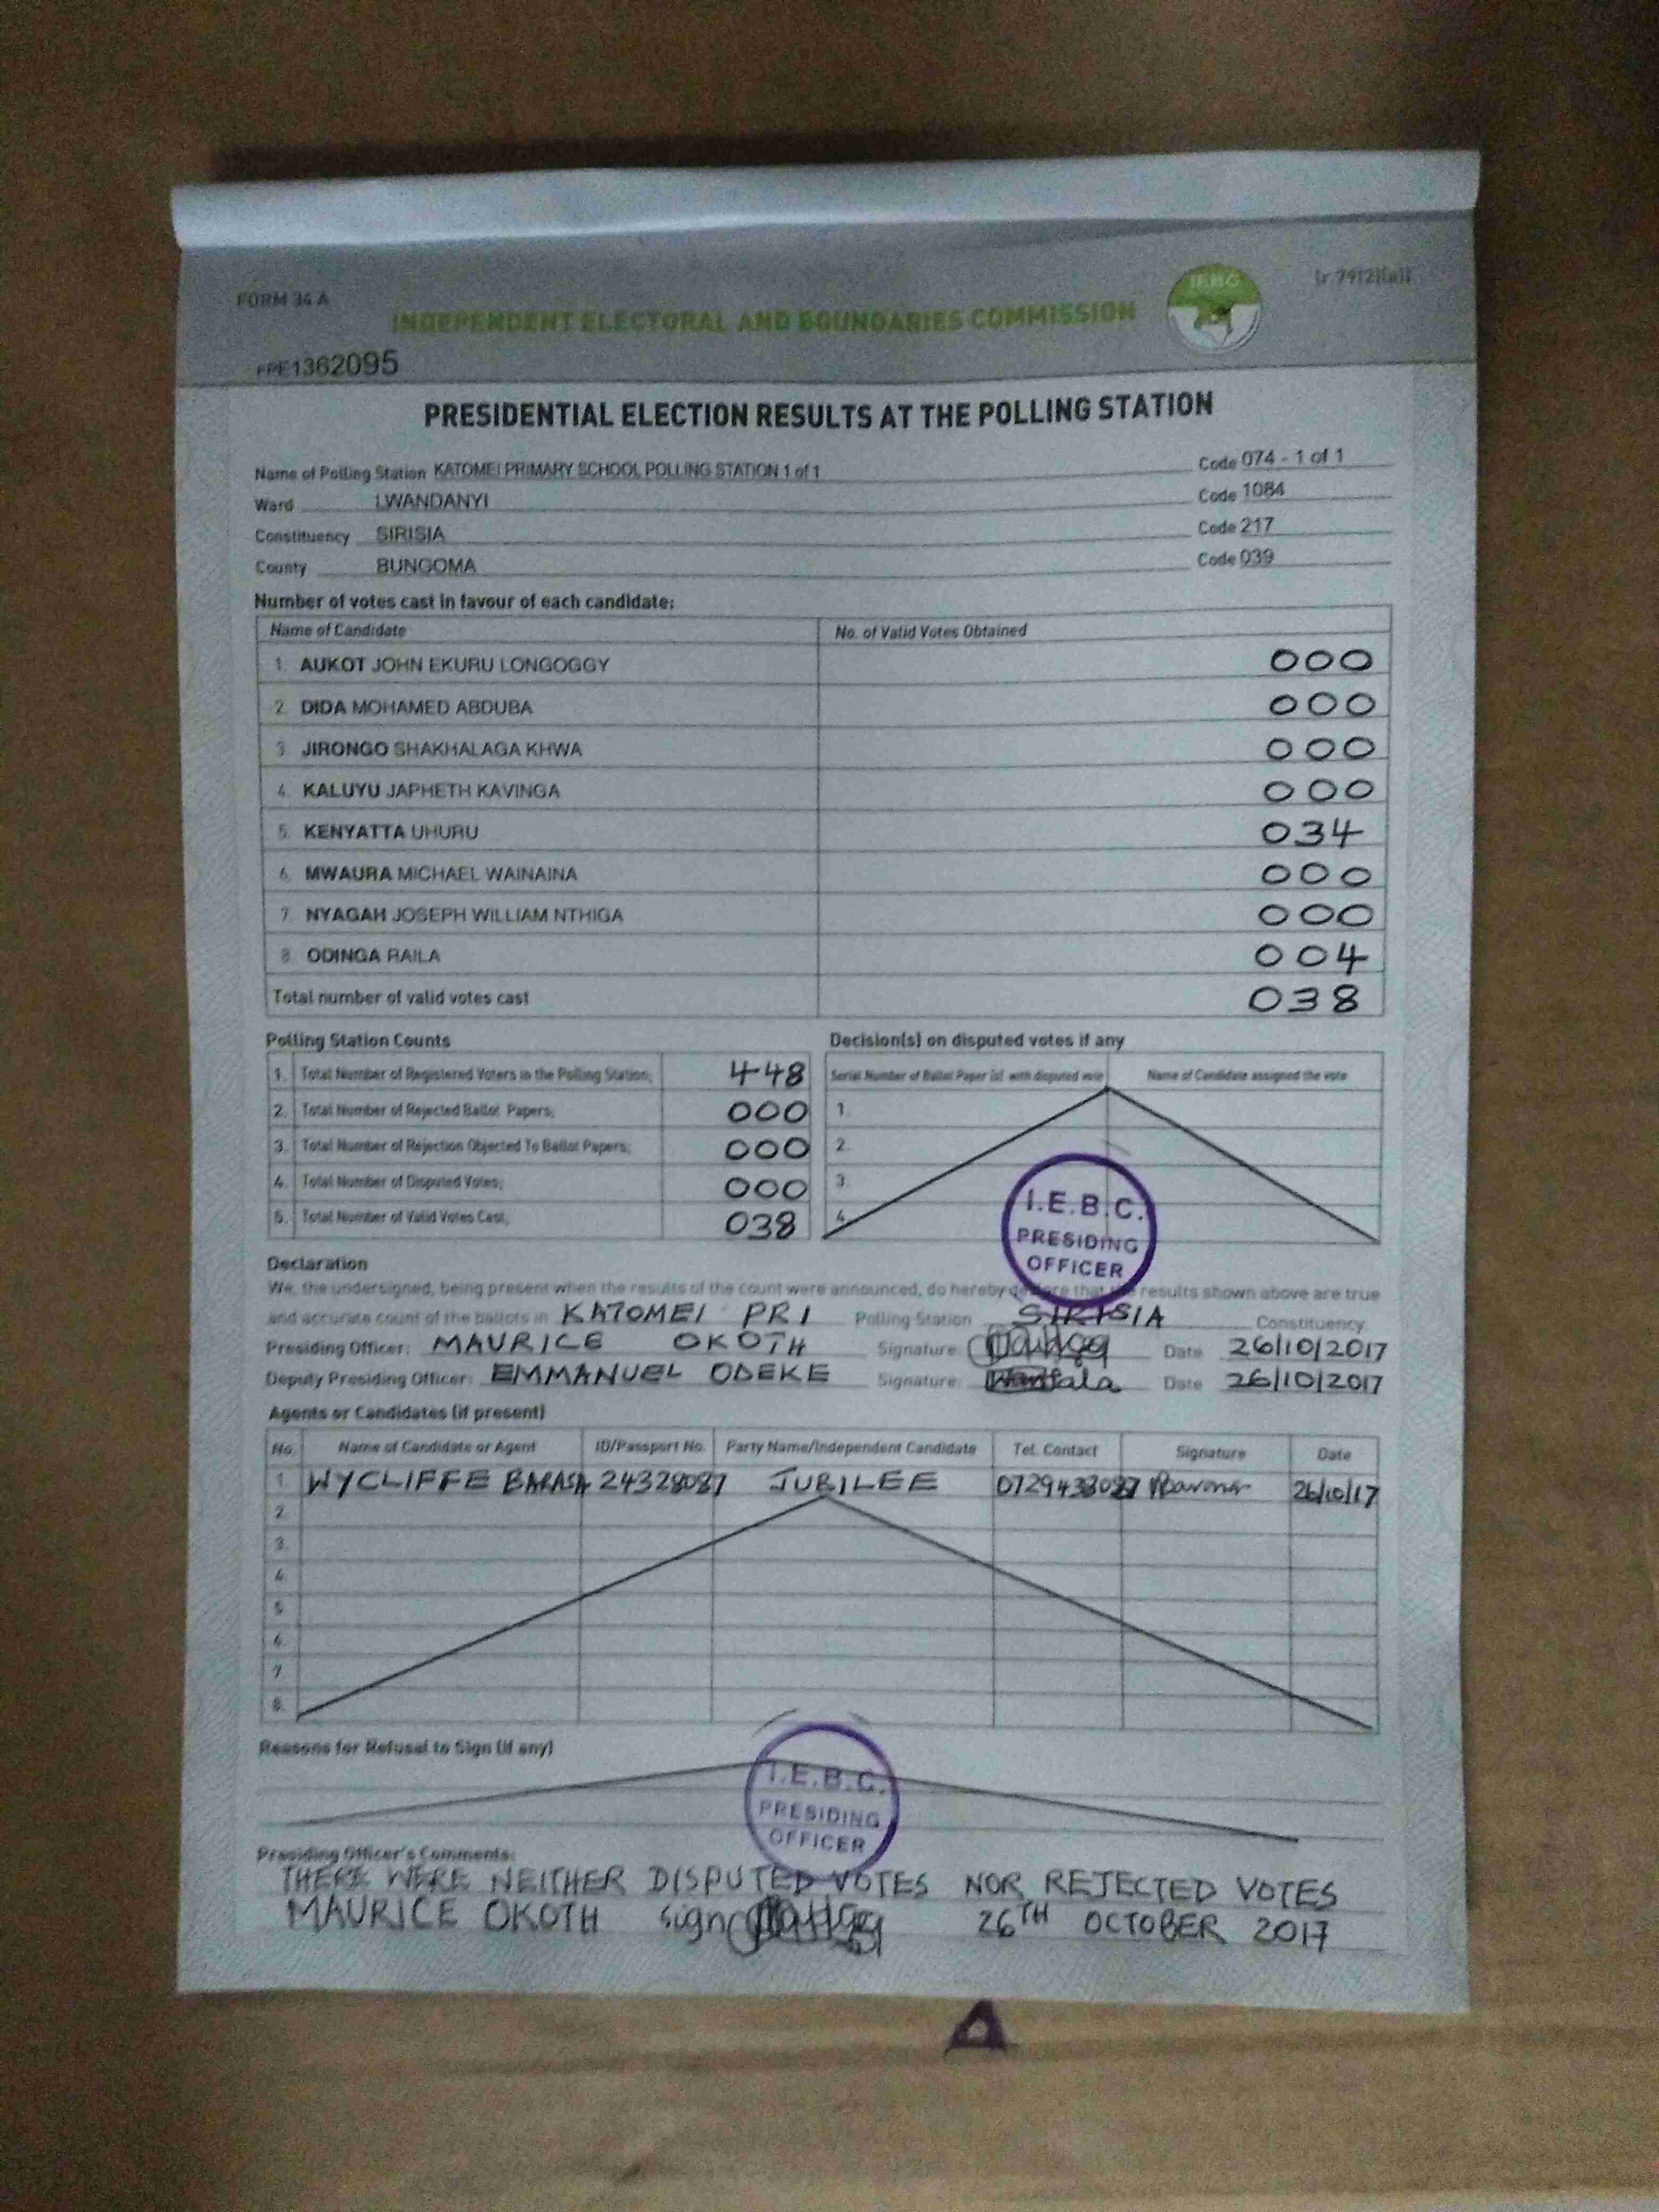 FORM 34 A
INDEPENDENT ELECTORAL AND BOUNDARIES COMMISSION
IEBC
1362095
PRESIDENTIAL ELECTION RESULTS AT THE POLLING STATION
Name of Polling Station KATOMEI PRIMARY SCHOOL POLLING STATION 1 of 1 Code 074 - 1 of 1
Ward LWANDANYI Code 1084
Constituency SIRISIA Code 217
County BUNGOMA Code 039
Number of votes cast in favour of each candidate:
Name of Candidate No. of Valid Votes Obtained
1. AUKOT JOHN EKURU LONGOGGY 000
2. DIDA MOHAMED ABDUBA 000
3. JIRONGO SHAKHALAGA KHWA 000
4. KALUYU JAPHETH KAVINGA 000
5. KENYATTA UHURU 034
6. MWAURA MICHAEL WAINAINA 000
7. NYAGAH JOSEPH WILLIAM NTHIGA 000
8. ODINGA RAILA 004
Total number of valid votes cast 038
Polling Station Counts
1. Total Number of Registered Voters in the Polling Station; 448
2. Total Number of Rejected Ballot Papers; 000
3. Total Number of Rejection Objected To Ballot Papers; 000
4. Total Number of Disputed Votes; 000
5. Total Number of Valid Votes Cast; 038
Decision(s) on disputed votes if any
Serial Number of Ballot Paper (s) with disputed vote Name of Candidate assigned the vote
1.
2.
3.
4.
I.E.B.C.
PRESIDING
OFFICER
Declaration
We, the undersigned, being present when the results of the count were announced, do hereby declare that the results shown above are true
and accurate count of the ballots in KATOMEI PRI Polling Station SIRISIA Constituency
Presiding Officer: MAURICE OKOTH Signature: Date 26/10/2017
Deputy Presiding Officer: EMMANUEL ODEKE Signature: Date 26/10/2017
Agents or Candidates (if present)
No. Name of Candidate or Agent ID/Passport No. Party Name/Independent Candidate Tel. Contact Signature Date
1. WYCLIFFE BARASA 24328087 JUBILEE 26/10/17
2.
3.
4.
5.
6.
7.
8.
Reasons for Refusal to Sign (if any)
I.E.B.C.
PRESIDING
OFFICER
Presiding Officer's Comments:
THERE WERE NEITHER DISPUTED VOTES NOR REJECTED VOTES
MAURICE OKOTH sign 26TH OCTOBER 2017